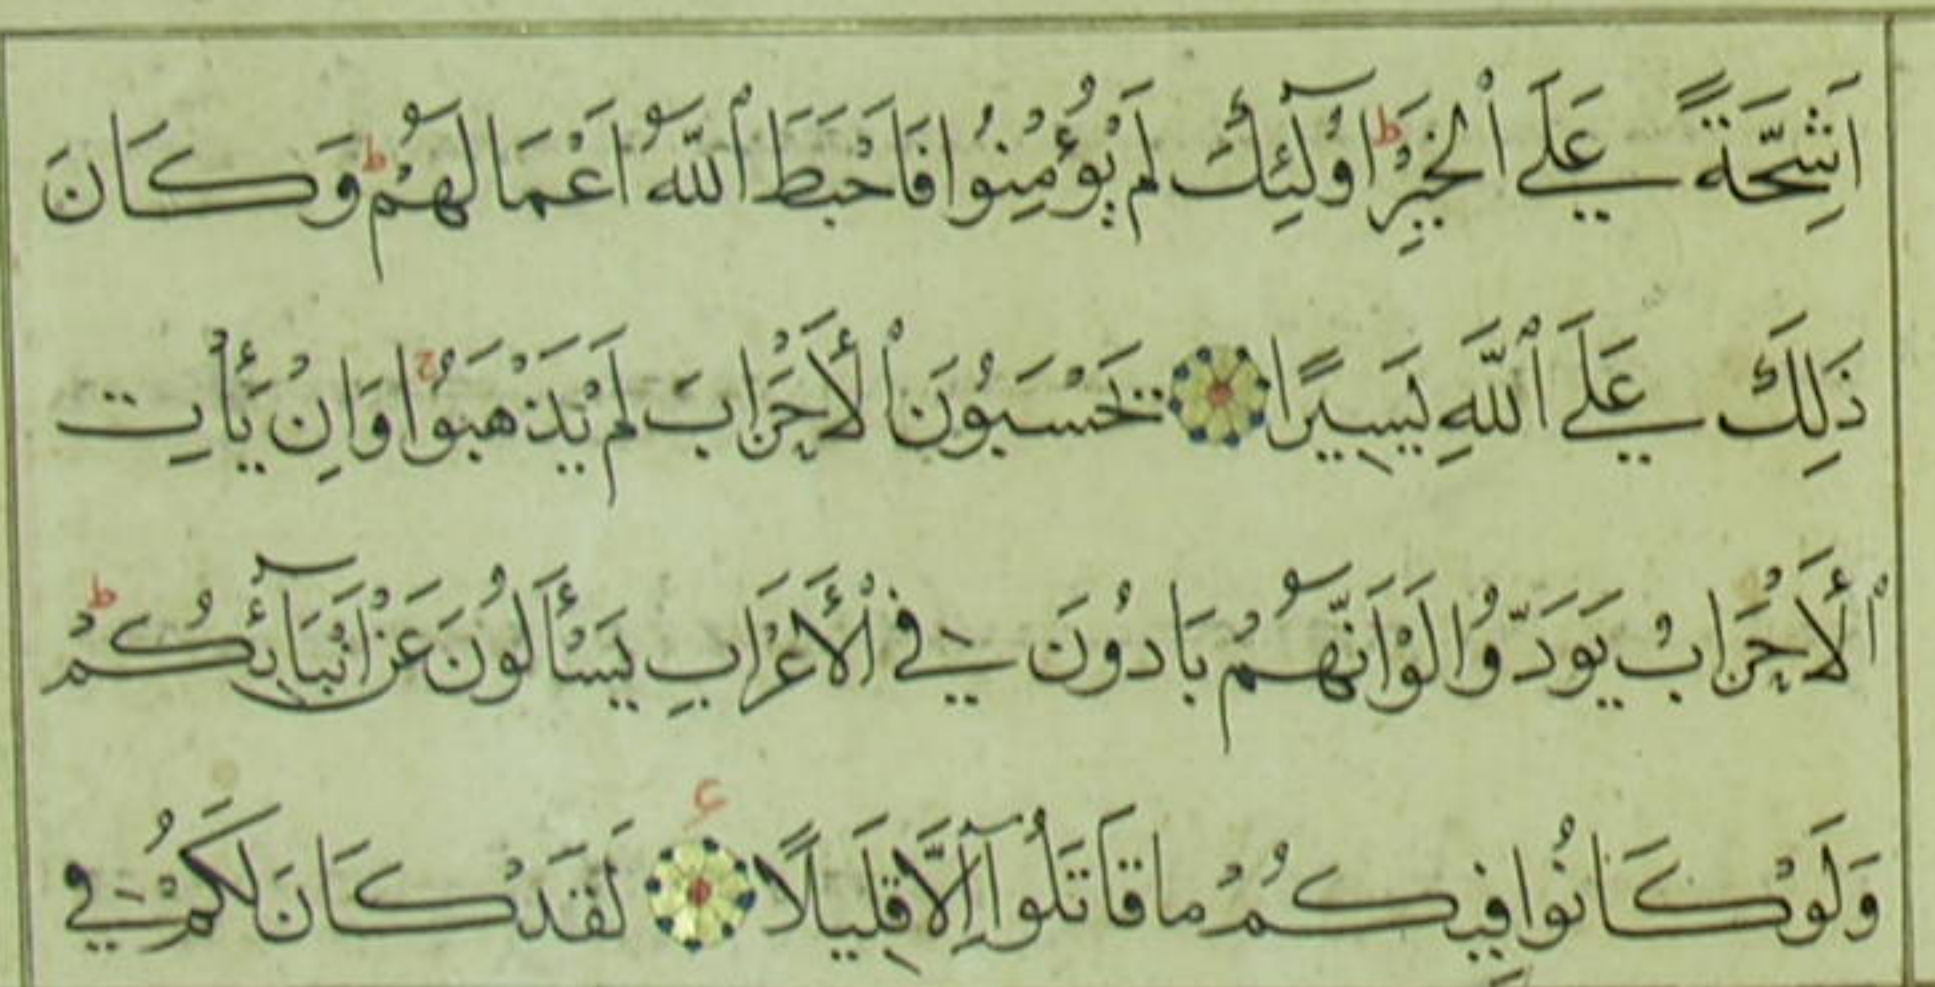 اَشِحَّةً عَلَى ٱلْخَيْرِ ط اُولٰٓئِكَ لَمْ يُؤْمِنُوا فَاَحْبَطَ ٱللّٰهُ اَعْمَالَهُمْ ط وَكَانَ
ذَلِكَ عَلَى ٱللّٰهِ يَسِيرًا يَحْسَبُونَ ٱلْأَحْزَابَ لَمْ يَذْهَبُوا ج وَاِنْ يَأْتِ
ٱلْأَحْزَابُ يَوَدُّوا لَوْ اَنَّهُمْ بَادُونَ فِي ٱلْأَعْرَابِ يَسْأَلُونَ عَنْ اَنْبَآئِكُمْ ط
وَلَوْ كَانُوا فِيكُمْ مَا قَاتَلُوٓا اِلَّا قَلِيلًا ع لَقَدْ كَانَ لَكُمْ فِي